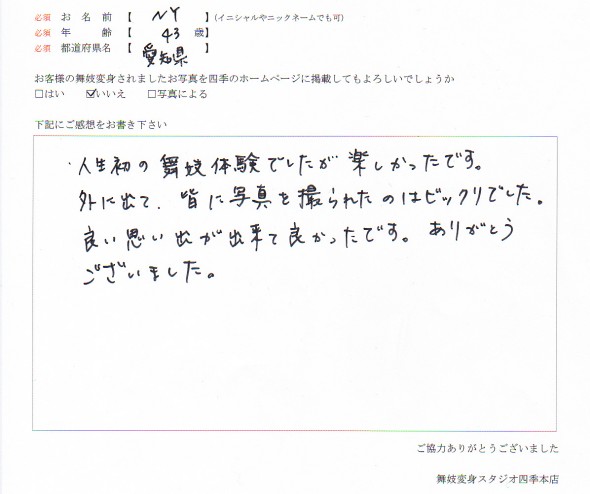 必須 お 名 前 【 NY 】 (イニシャルやニックネームでも可)
必須 年 齢 【 43 歳】
必須 都道府県名 【 愛知県 】
お客様の舞妓変身されましたお写真を四季のホームページに掲載してもよろしいでしょうか
□はい ☑いいえ □写真による
下記にご感想をお書き下さい
・人生初の舞妓体験でしたが楽しかったです。
外に出て、皆に写真を撮られたのはビックリでした。
良い思い出が出来て良かったです。ありがとう
ございました。
ご協力ありがとうございました
舞妓変身スタジオ四季本店